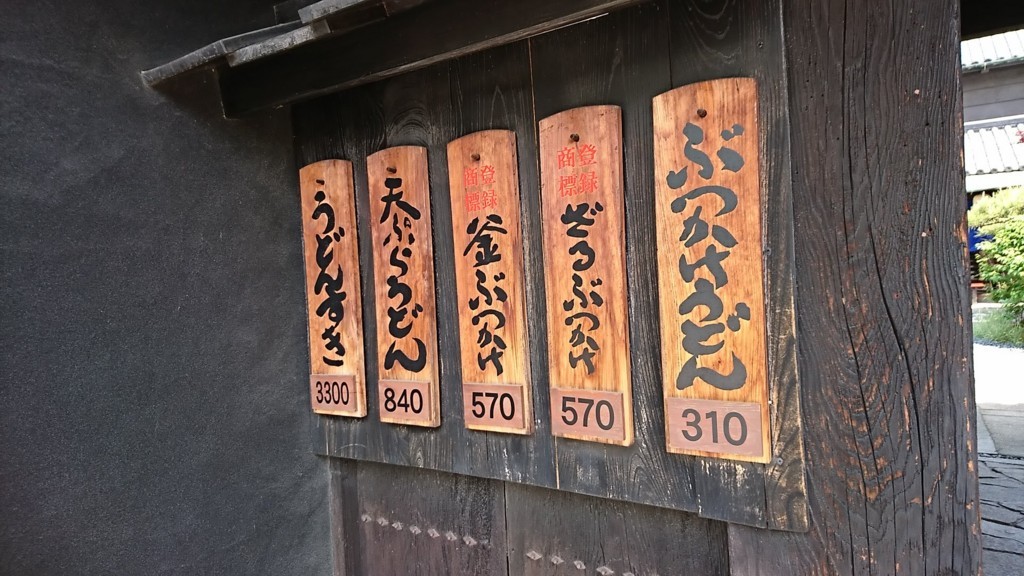 ぶっかけうどん
310
登録
商標
ざるぶっかけ
570
登録
商標
釜ぶっかけ
570
天ぷらうどん
840
うどんすき
3300